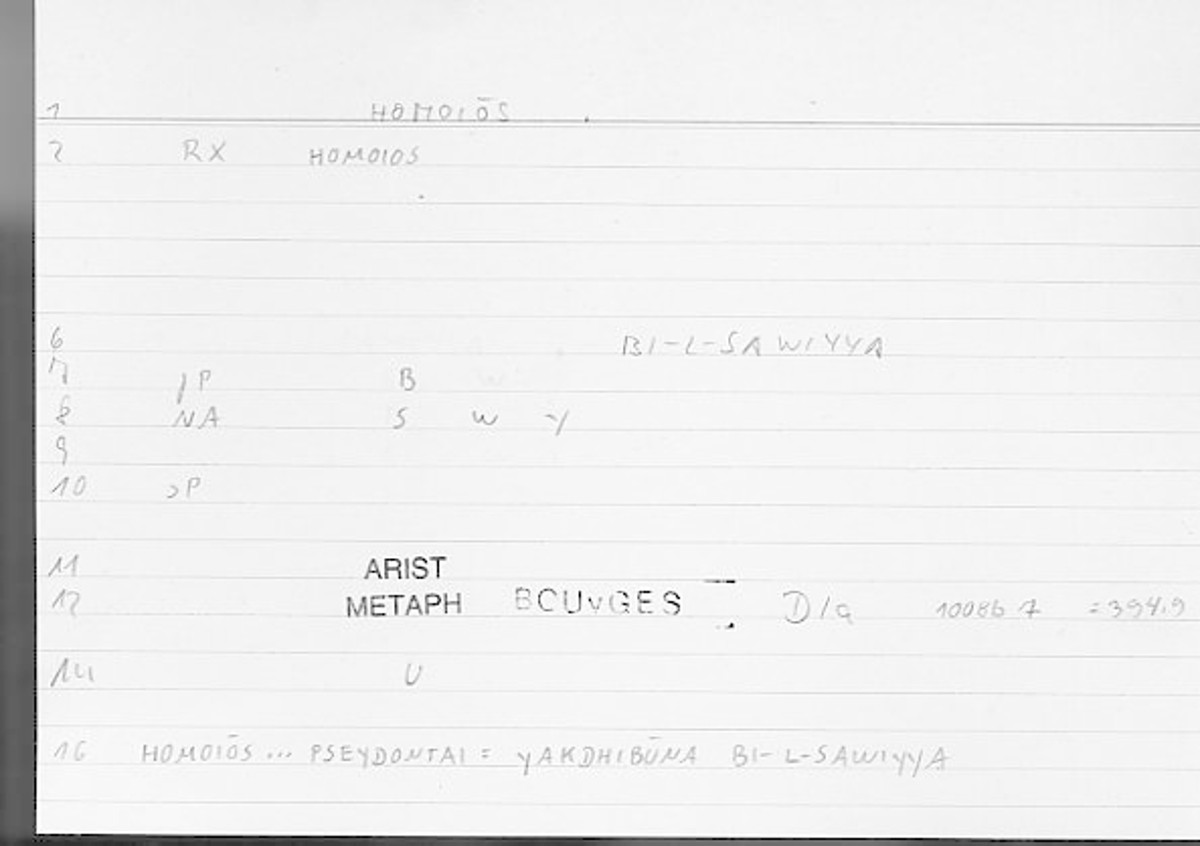 1 HOMOIŌS
2 RX HOMOIOS
6 BI-L-SAWIYYA
7 JP B
8 NA S W Y
9
10 >P
11 ARIST
12 METAPH BOUYGES D/a 1008b 7 = 394.9
14 U
16 HOMOIŌS ... PSEYDONTAI = YAKDHIBŪNA BI-L-SAWIYYA